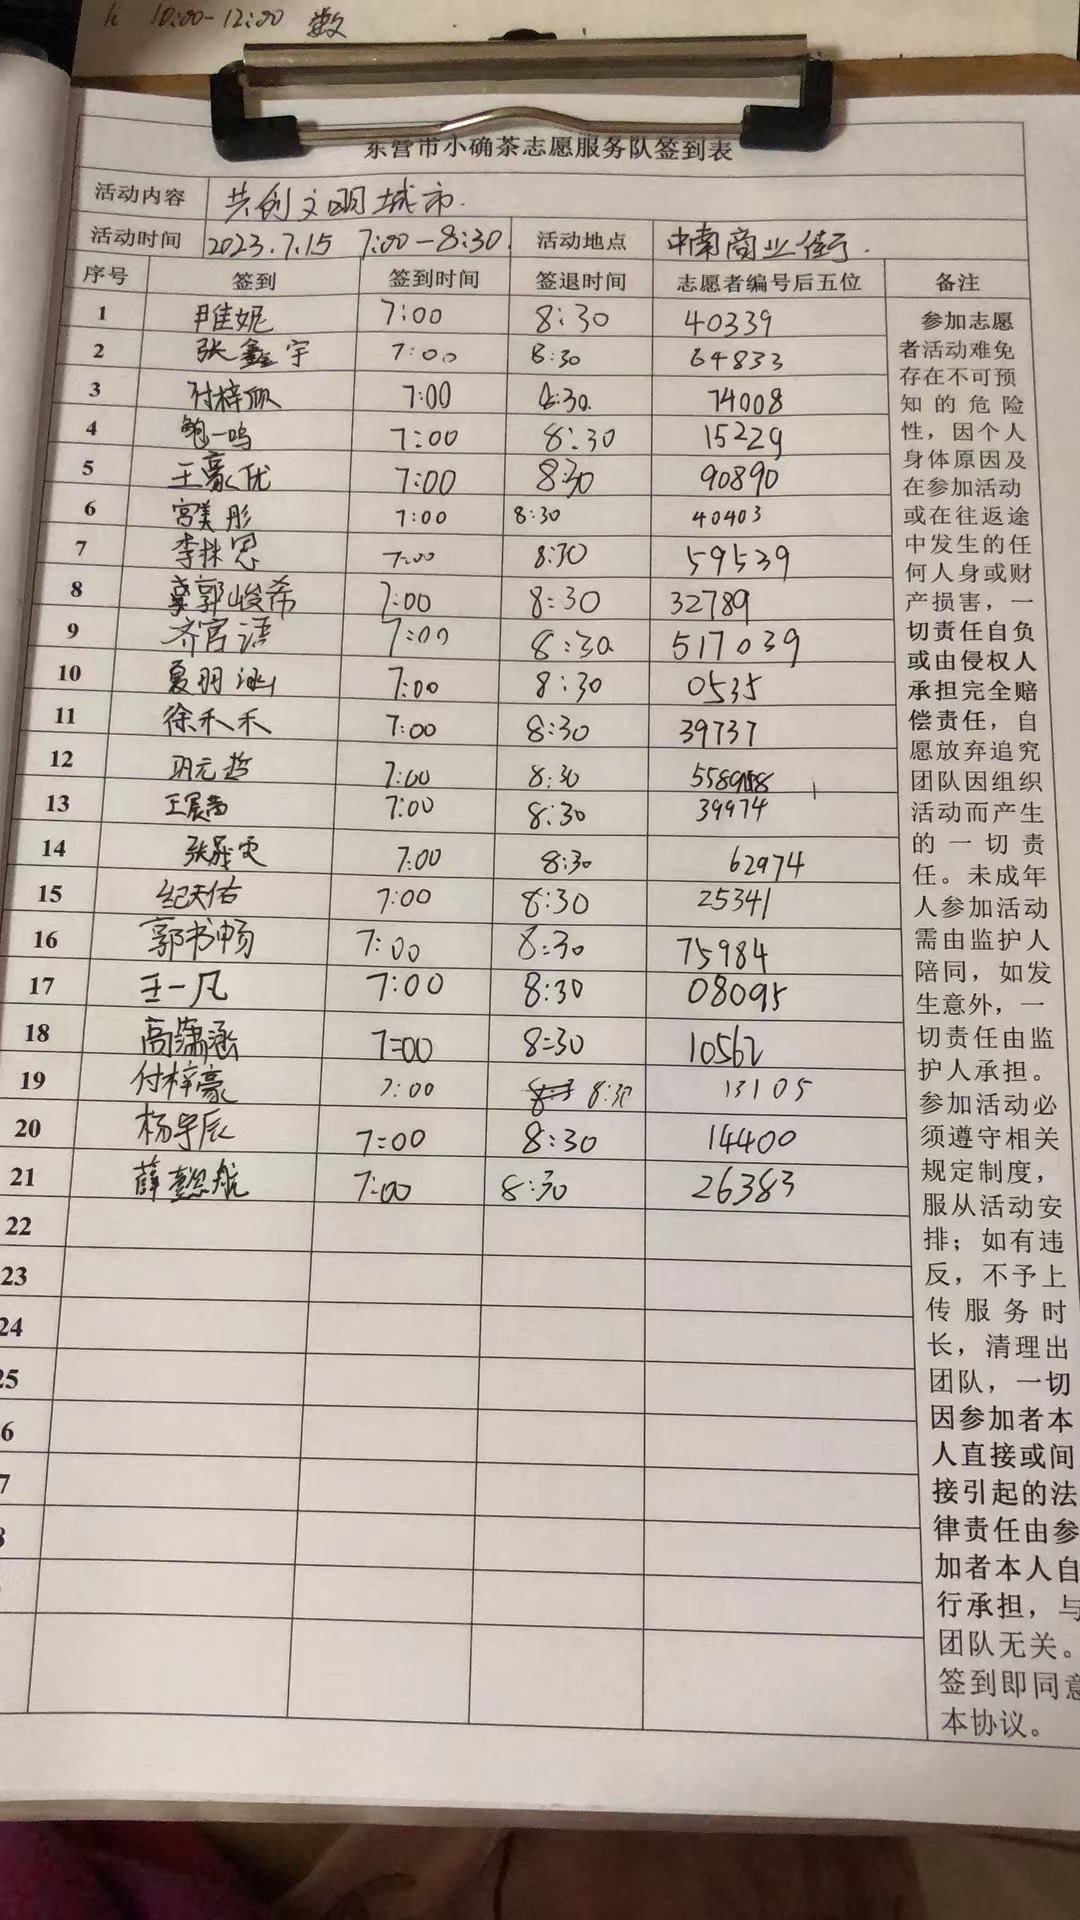 10:00-12:00 数
东营市小确茶志愿服务队签到表
活动内容 共创文明城市.
活动时间 2023.7.15 7:00-8:30. 活动地点 中南商业街.
序号 签到 签到时间 签退时间 志愿者编号后五位 备注
1 7:00 8:30 40339
2 张鑫宇 7:00 8:30 64833
3 付梓 7:00 8:30. 74008
4 鲍一鸣 7:00 8:30 15229
5 王豪优 7:00 8:30 90890
6 宫美彤 7:00 8:30 40403
7 李姝恩 7:00 8:30 59539
8 郭峻希 7:00 8:30 32789
9 齐官语 7:00 8:30 517039
10 夏羽涵 7:00 8:30 0535
11 徐禾禾 7:00 8:30 39737
12 巩元哲 7:00 8:30
13 王晨茜 7:00 8:30 39974
14 张晟 7:00 8:30 62974
15 纪天佑 7:00 8:30 25341
16 郭书畅 7:00 8:30 75984
17 王一凡 7:00 8:30 08095
18 高潇涵 7:00 8:30 10562
19 付梓豪 7:00 8:30 13105
20 杨宇辰 7:00 8:30 14400
21 薛懿航 7:00 8:30 26383
22
23
24
25
6
7
参加志愿
者活动难免
存在不可预
知的危险
性，因个人
身体原因及
在参加活动
或在往返途
中发生的任
何人身或财
产损害，一
切责任自负
或由侵权人
承担完全赔
偿责任，自
愿放弃追究
团队因组织
活动而产生
的一切责
任。未成年
人参加活动
需由监护人
陪同，如发
生意外，一
切责任由监
护人承担。
参加活动必
须遵守相关
规定制度，
服从活动安
排；如有违
反，不予上
传服务时
长，清理出
团队，一切
因参加者本
人直接或间
接引起的法
律责任由参
加者本人自
行承担，与
团队无关。
签到即同意
本协议。